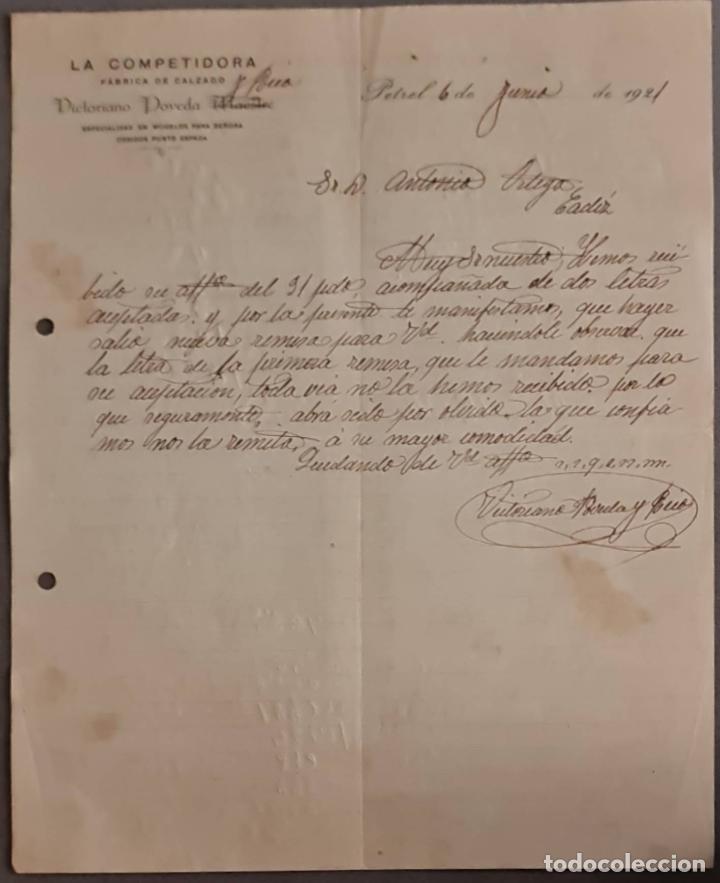 LA COMPETIDORA
FÁBRICA DE CALZADO
y Rico
Victoriano Poveda Maestre
ESPECIALIDAD EN MODELOS PARA SEÑORA
CODIGOS PUNTO ESPADA
Petrel 6 de Junio de 1921
Sr D. Antonio Ortega
Cadiz
Muy Sr nuestro, Hemos reci
bido su affa del 31 pdo, acompañada de dos letras
aceptadas, y por la presente le manifestamos, que hayer
salio nueva remesa para Vd. haciendole observar que
la letra de la primera remesa, que le mandamos para
su aceptacion, toda via no la hemos recibido. por lo
que seguramente, abrá sido por olvido. la que confia
mos nos la remita, á su mayor comodidad.
Quedando de Vd affo s.s.q.e.s.m.
Victoriano Poveda y Rico
todocoleccion.net